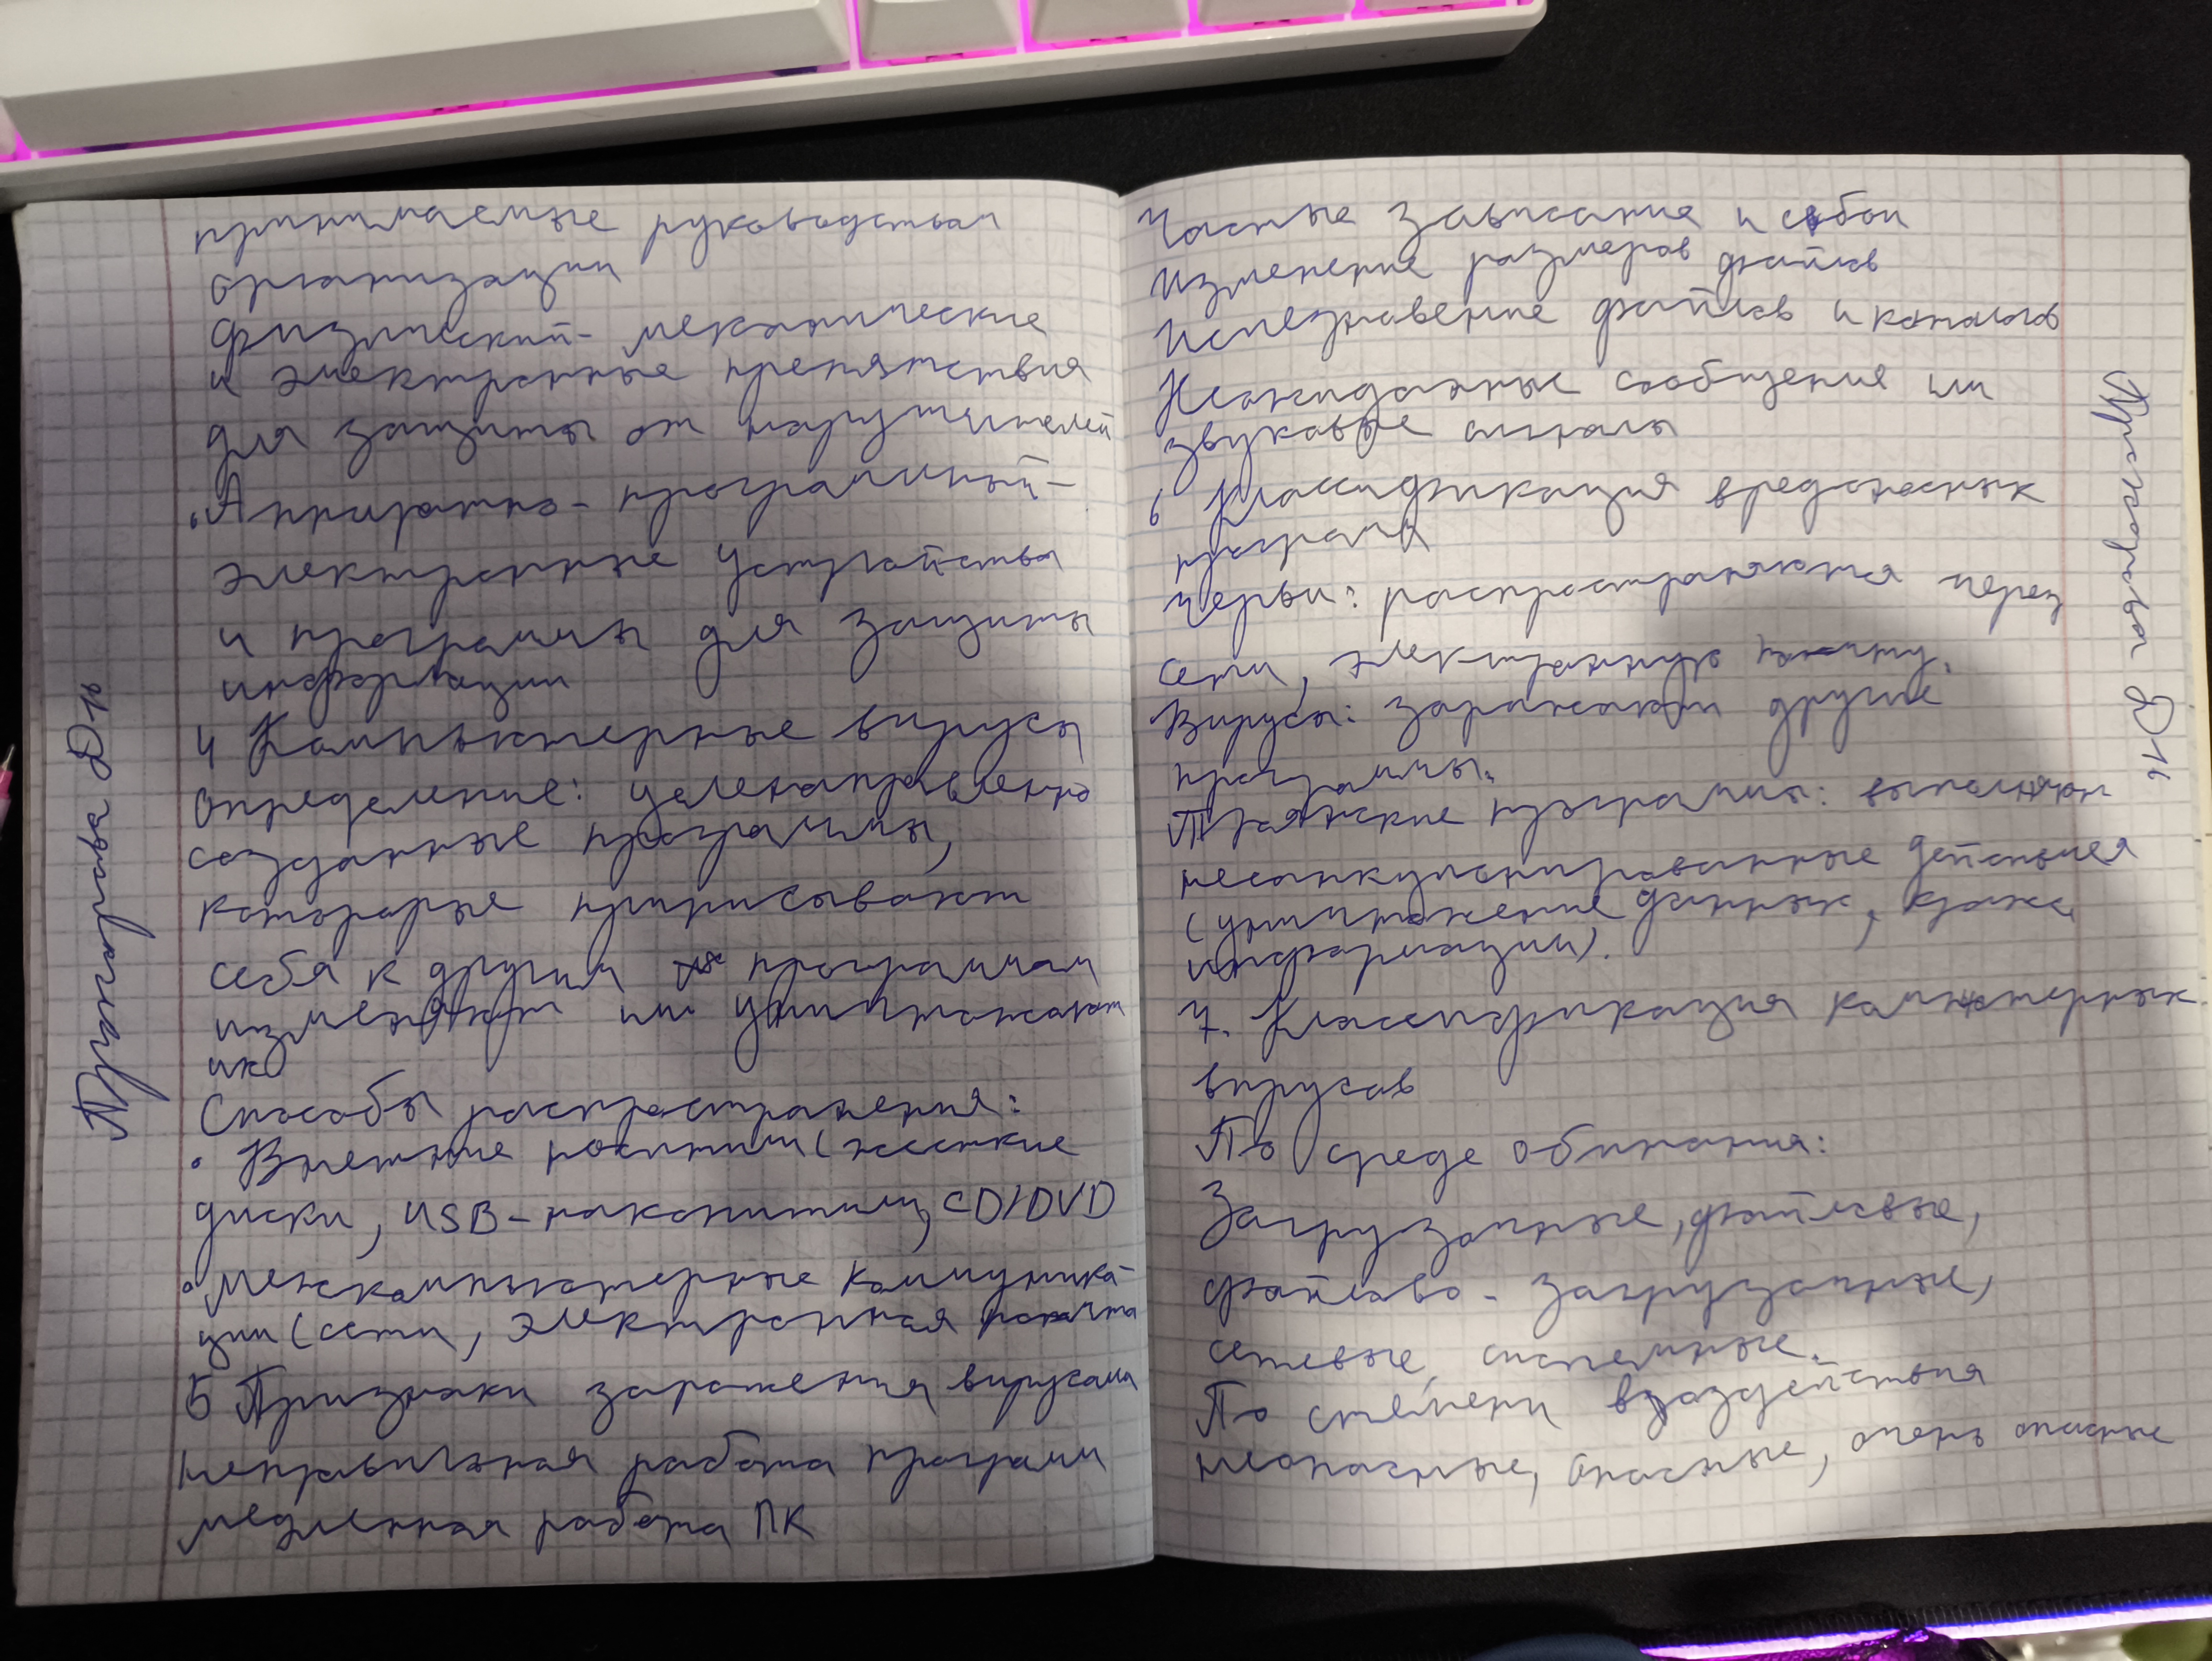 принимаемые руководством
организации
физический - механические
и электронные препятствия
для защиты от нарушителей
• Аппаратно - програмный -
электронные устройства
и программы для защиты
информации
4 Компьютерные вирусы
Определение: целенаправленно
созданные программы,
которорые приписывают
себя к другим программам
изменяют или уничтожают
их
Способы распространения:
• Внешние носители (жесткие
диски, USB-накопители, CD/DVD
• Межкомпьютерные коммуника-
ции (сети, электронная почта
5 Признаки заражения вирусами
Неправильная работа программ
медленная работа ПК
Частые зависания и сбои
Изменение размеров файлов
Исчезновение файлов и каталогов
Неожиданные сообщения или
звуковые сигналы
6 Классификация вредоносных
программ
Черви: распространяются через
сети, электронную почту.
Вирусы: заражают другие
программы.
Троянские программы: выполняют
несанкционированные действия
(уничтожение данных, кража
информации).
7. Классификация компьютерных
вирусов
По среде обитания:
Загрузочные, файловые,
файлово - загрузочные,
сетевые, системные.
По степени воздействия
неопасные, опасные, очень опасные